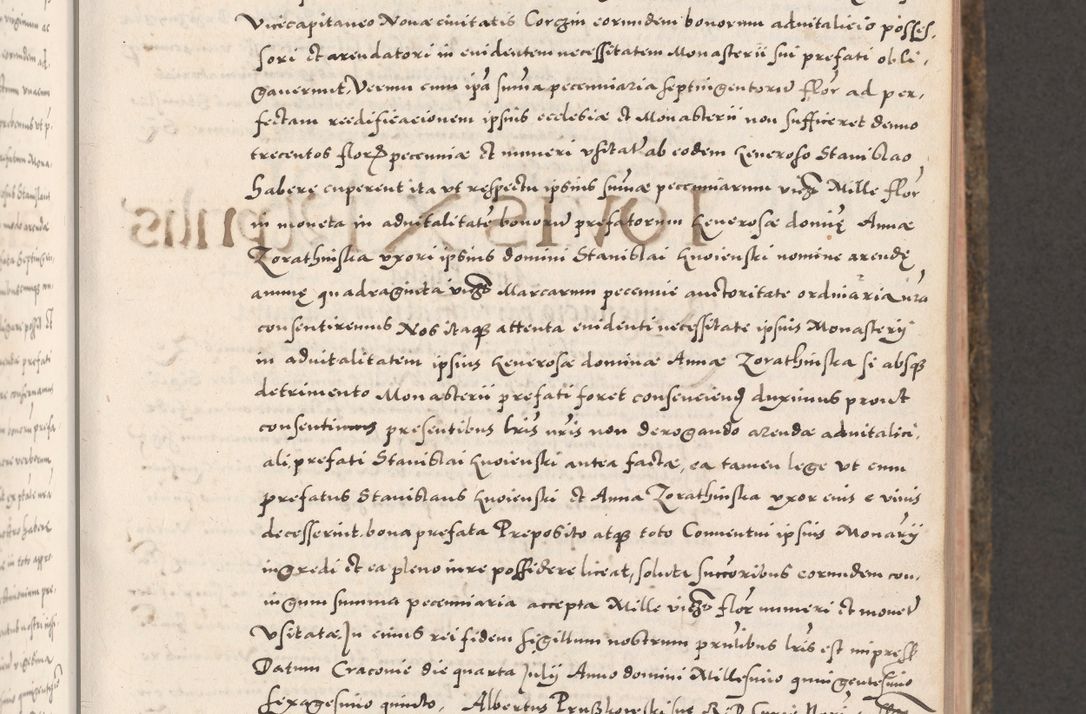 Vicecapitaneo Novae civitatis Corczin eorundem bonorum advitalicio posses,
sori et arendatori in evidentem necessitatem Monasterii sui prefati obli,
gaverint, Verum cum ipa suma pecenniaria septingentorū flor ad per,
fectam reedificacionem ipsius ecclesiae et Monasterii non sufficeret denuo
trecentos flor pecenniae et numeri usitat ab eodem Generoso Stanislao
habere cuperent ita ut respectu ipsius sumae pecenniarum Mille flor
in moneta in advitalitatē bonorū prefatorum Generosae dominę Annae
Zorathinska uxori ipsius domini Stanislai Gnoienski nomine arendę
annuę quadraginta Marcarum pecennie auctoritate ordinaria nra
consentiremus Nos itaque attenta evidenti necessitate ipsius Monasterii
in advitalitatem ipsius Generosae dominae Annae Zorathinska si absque
detrimento Monasterii prefati foret consenciend duximus prout
consentimus presentibus lris nris non derogando arendae advitalici,
ali, prefati Stanislai Gnoienski antea factae, ea tamen lege ut cum
prefatus Stanislaus Gnoienski et Anna Zorathinska uxor eius e vivis
decesserint, bona prefata Preposito atque toto Conventui ipsius Monarii
ingredi et ea pleno iure possidere liceat, soluta succoribus eorundem con,
iugum summa pecenniaria accepta Mille flor numeri et monet
Usitatae, In cuius rei fidem sigillum nostrum prntibus lris est impress
Datum Cracovie die quarta Julii Anno domini Millesimo quingentesimo
sexagesimo quinto, Albertus